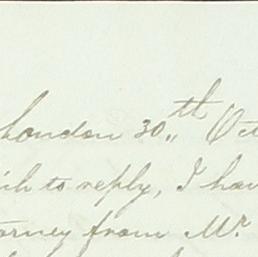 London 30th Oct
ich to reply, I hav
orney from Mr.